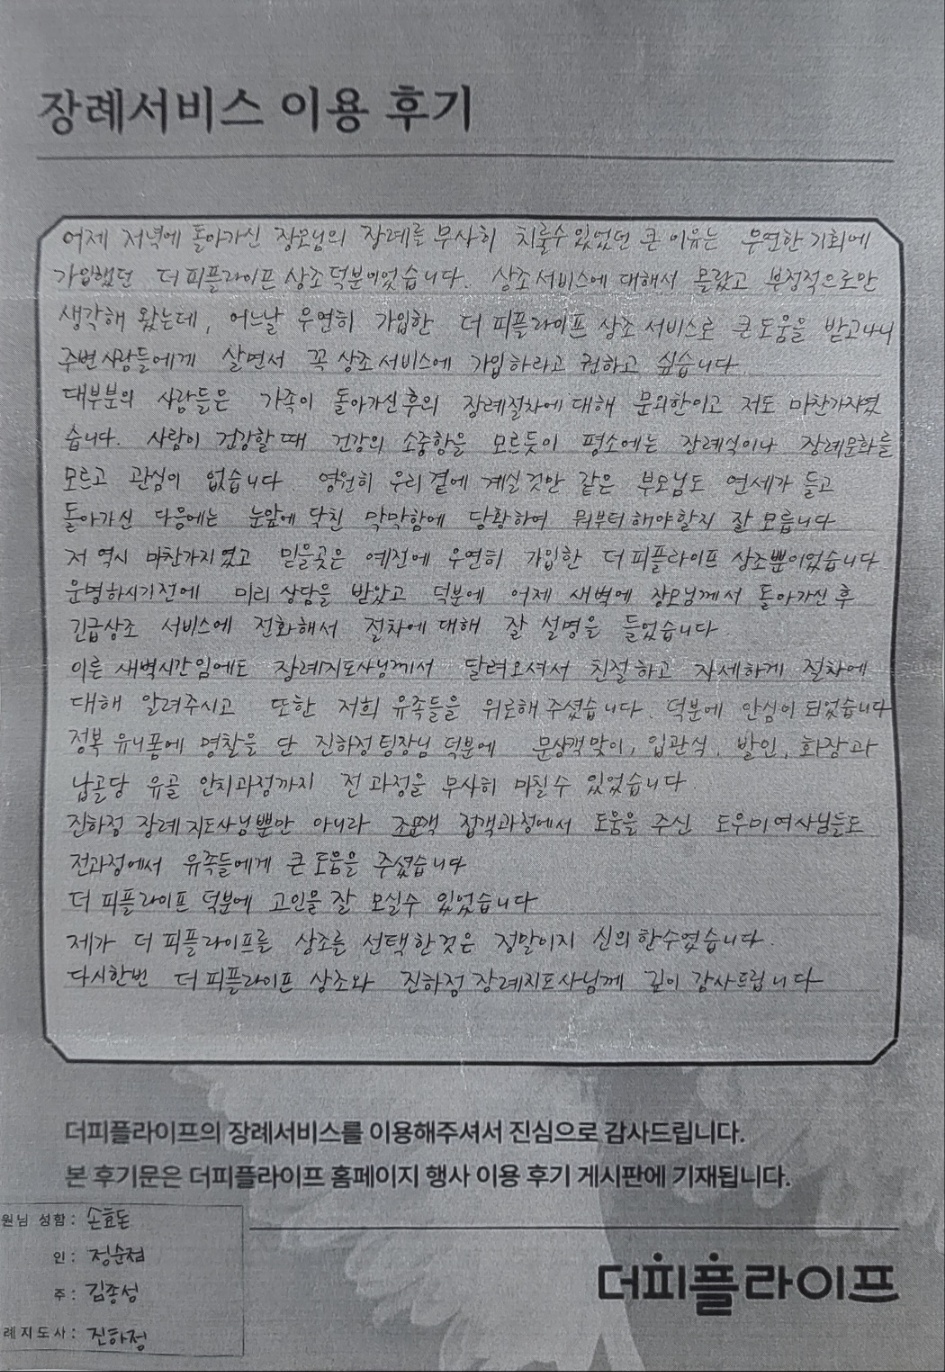 장례서비스 이용 후기
어제 저녁에 돌아가신 장모님의 장례를 무사히 치룰수 있었던 큰 이유는 우연한 기회에
가입했던 더 피플라이프 상조 덕분이었습니다. 상조 서비스에 대해서 몰랐고 부정적으로만
생각해 왔는데, 어느날 우연히 가입한 더 피플라이프 상조 서비스로 큰 도움을 받고나니
주변 사람들에게 살면서 꼭 상조 서비스에 가입하라고 권하고 싶습니다
대부분의 사람들은 가족이 돌아가신 후의 장례절차에 대해 문외한이고 저도 마찬가지였
습니다. 사람이 건강할 때 건강의 소중함을 모르듯이 평소에는 장례식이나 장례문화를
모르고 관심이 없습니다 영원히 우리 곁에 계실것만 같은 부모님도 연세가 들고
돌아가신 다음에는 눈앞에 닥친 막막함에 당황하여 뭐부터 해야할지 잘 모릅니다
저 역시 마찬가지였고 믿을곳은 예전에 우연히 가입한 더 피플라이프 상조뿐이었습니다
운명하시기전에 미리 상담을 받았고 덕분에 어제 새벽에 장모님께서 돌아가신 후
긴급상조 서비스에 전화해서 절차에 대해 잘 설명을 들었습니다.
이른 새벽시간임에도 장례지도사님께서 달려오셔서 친절하고 자세하게 절차에
대해 알려주시고 또한 저희 유족들을 위로해 주셨습니다. 덕분에 안심이 되었습니다
정복 유니폼에 명찰을 단 진하정 팀장님 덕분에 문상객 맞이, 입관식, 발인, 화장과
납골당 유골 안치과정까지 전 과정을 무사히 마칠 수 있었습니다
진하정 장례지도사님뿐만 아니라 조문객 접객과정에서 도움을 주신 도우미 여사님들도
전과정에서 유족들에게 큰 도움을 주셨습니다
더 피플라이프 덕분에 고인을 잘 모실수 있었습니다
제가 더 피플라이프를 상조를 선택한것은 정말이지 신의 한수였습니다.
다시한번 더 피플라이프 상조와 진하정 장례지도사님께 깊이 감사드립니다
더피플라이프의 장례서비스를 이용해주셔서 진심으로 감사드립니다.
본 후기문은 더피플라이프 홈페이지 행사 이용 후기 게시판에 기재됩니다.
원님 성함: 손효돈
인: 정순점
주: 김종성
례지도사: 진하정
더피플라이프